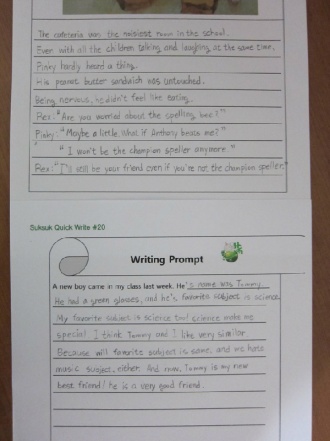 The cafeteria was the noisiest room in the school.
Even with all the children talking and laughing at the same time,
Pinky hardly heard a thing.
His peanut butter sandwich was untouched.
Being nervous, he didn't feel like eating.
Rex: "Are you worried about the spelling bee?"
Pinky: "Maybe a little. What if Anthony beats me?"
" "I won't be the champion speller anymore."
Rex: "I'll still be your friend even if you're not the champion speller."
Suksuk Quick Write #20
Writing Prompt
A new boy came in my class last week. He's name was Tommy.
He had a green glasses, and he's favorite subject is science.
My favorite subject is science too! science make me
special! I think Tommy and I like very similar.
Because will favorite subject is same, and we hate
music subject, either. And now, Tommy is my new
best friend! he is a very good friend.